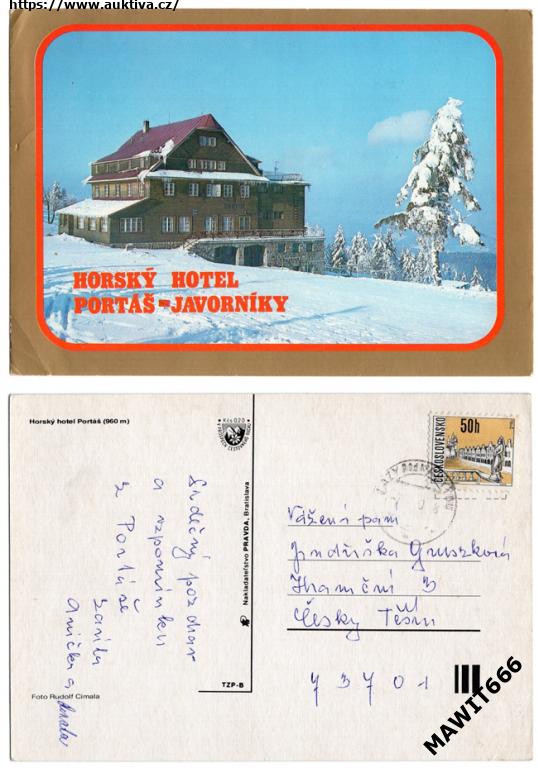 https://www.auktiva.cz/
HORSKÝ HOTEL
PORTÁŠ-JAVORNÍKY
Horský hotel Portáš (960 m)
Kčs 0,20
50h
ČESKOSLOVENSKO
Srdečný pozdrav
a vzpomínku
z Portáše
zasílá
Anička a
Nakladateľstvo PRAVDA, Bratislava
TZP-B
Foto Rudolf Cimala
Vážená paní
Jindřiška Gruszková
Hraniční 3
Česky Těšín
73701
MAWIT666